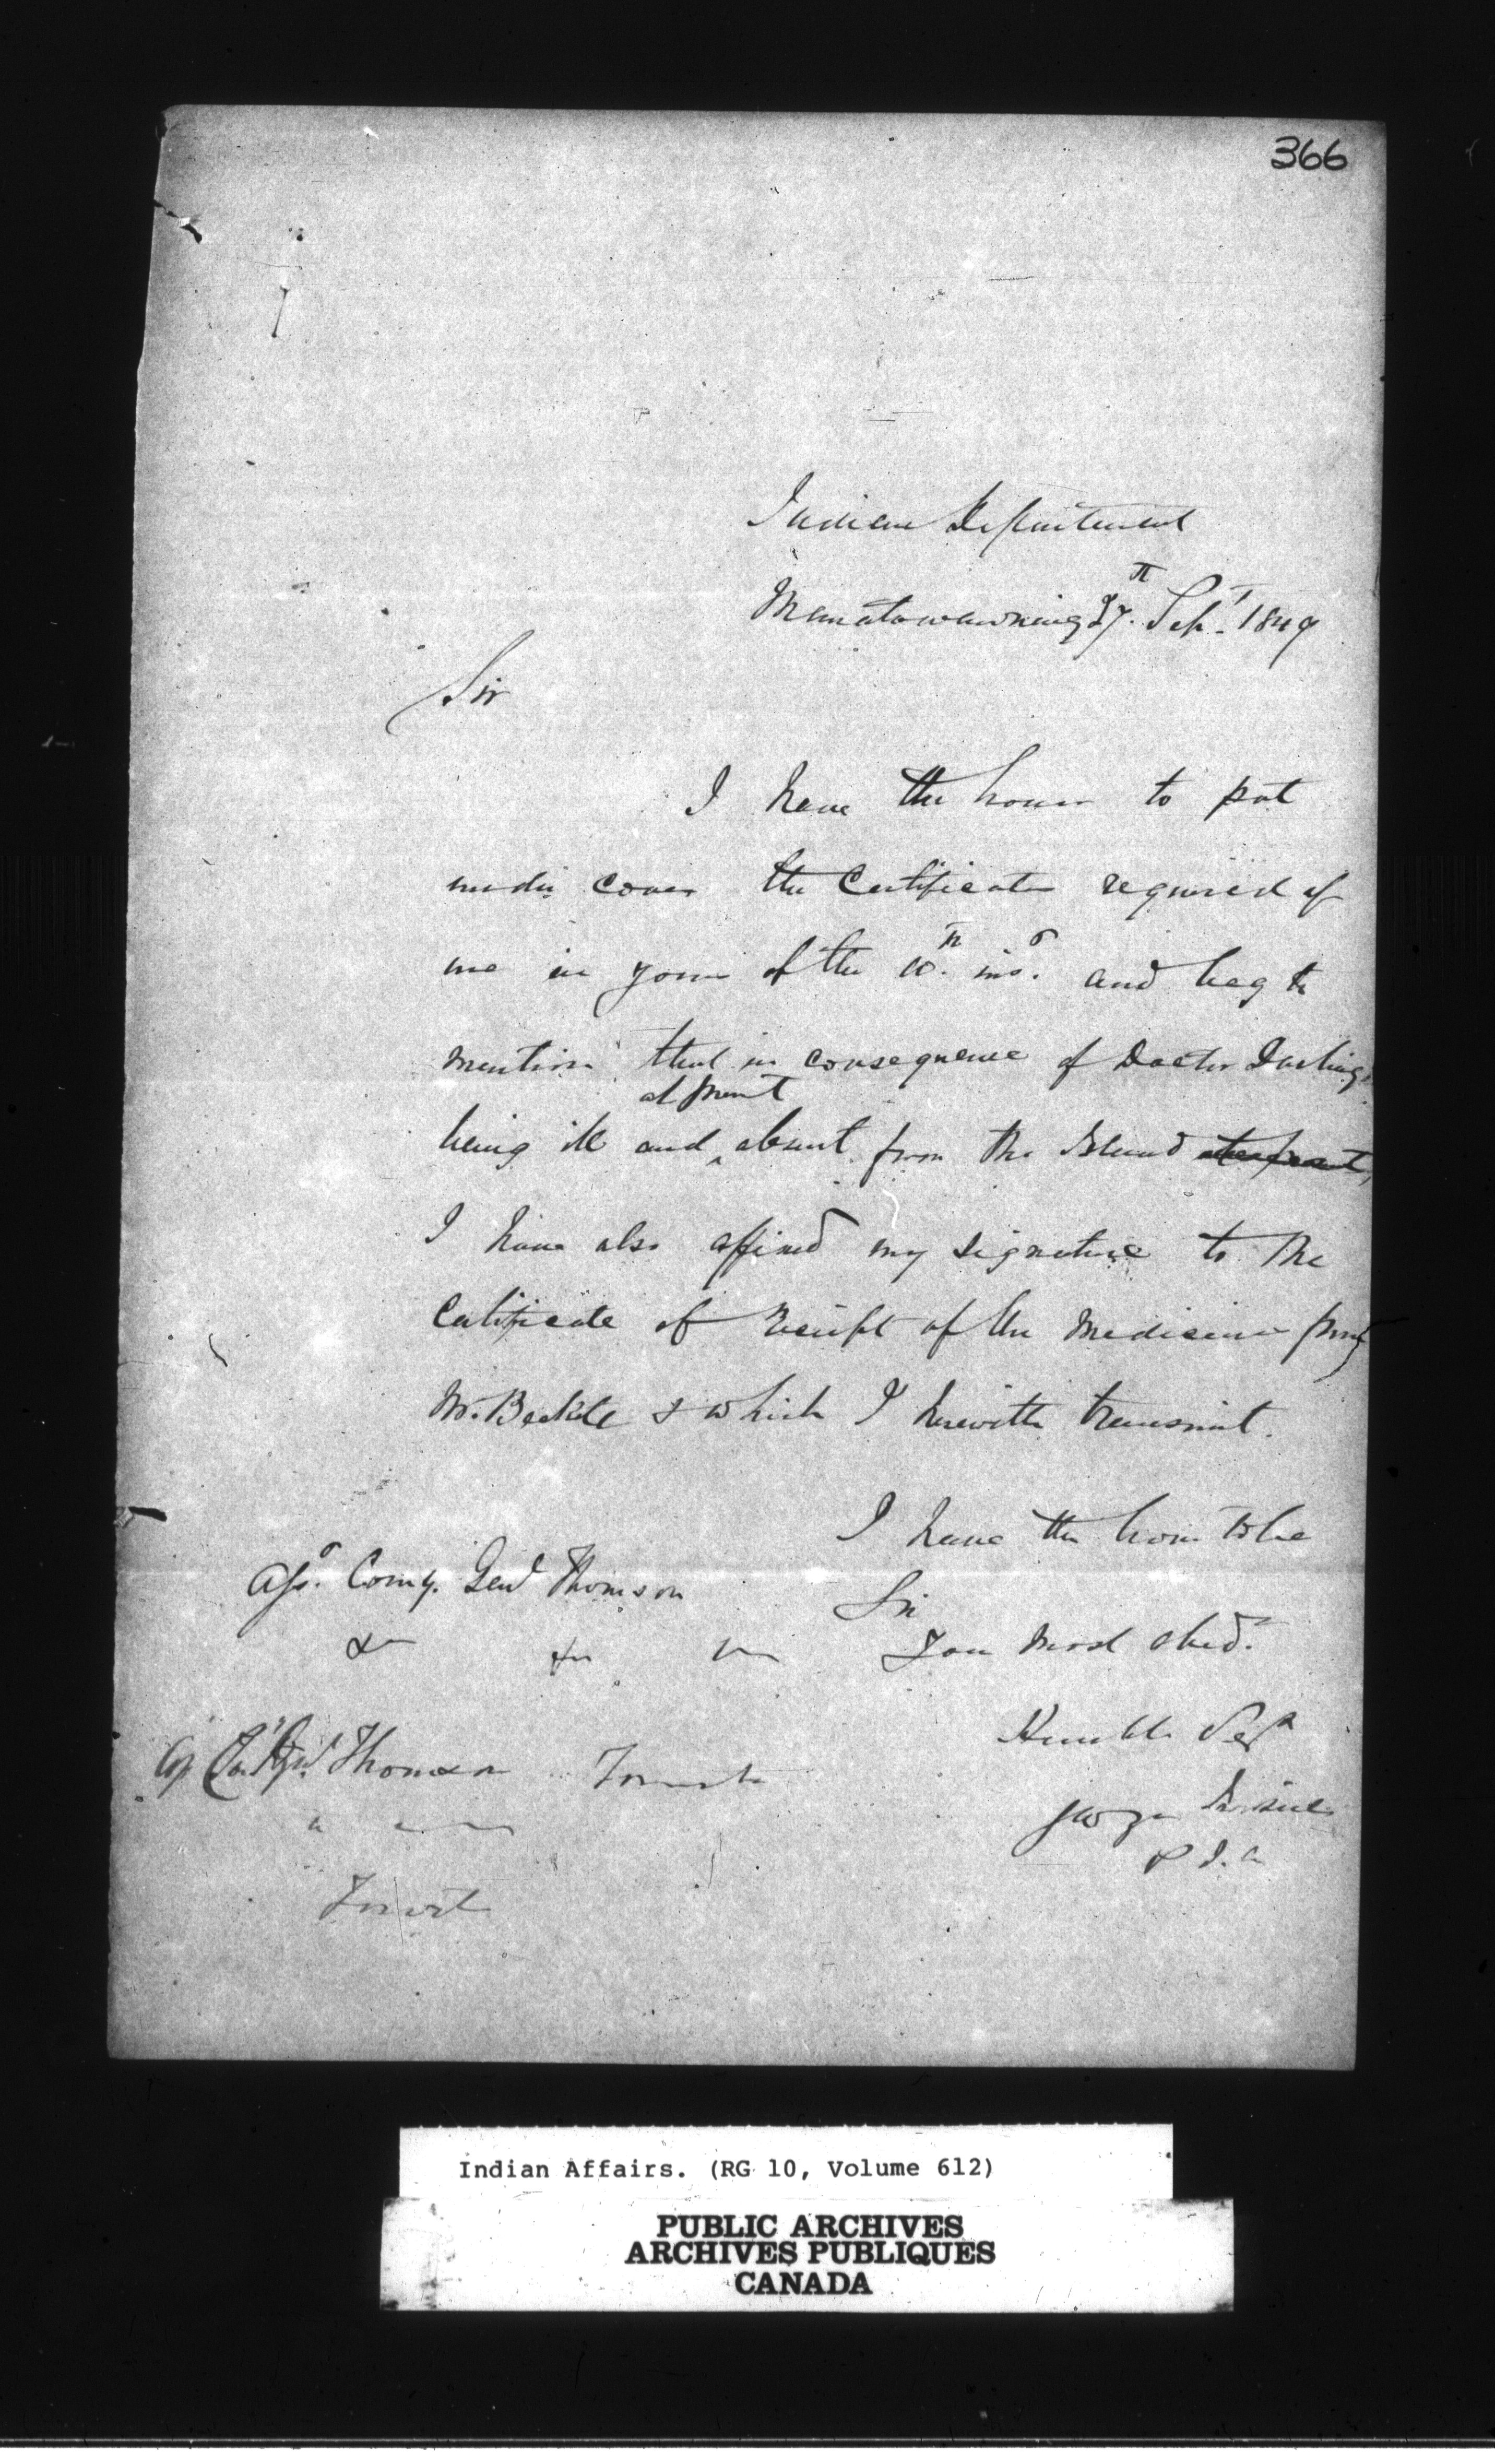 366
Indian Department
Manatowawning 27th Sept 1849
Sir
I have the honor to put
under cover the Certificate required of
me in your of the 10th inst. and beg to
mention that in consequence of Doctor Darling
at present
being ill and absent from the Island at present,
I have also affixed my signature to the
Certificate of receipt of the Medicines from
Mr. Beckle & which I herewith transmit.
I have the honor to be
Asst. Comy. Genl Thomson
Sir
Your most obed.
Humble Sert
Thomson Toronto
George Ironside
S I. A
Toronto
Indian Affairs. (RG 10, Volume 612)
PUBLIC ARCHIVES
ARCHIVES PUBLIQUES
CANADA